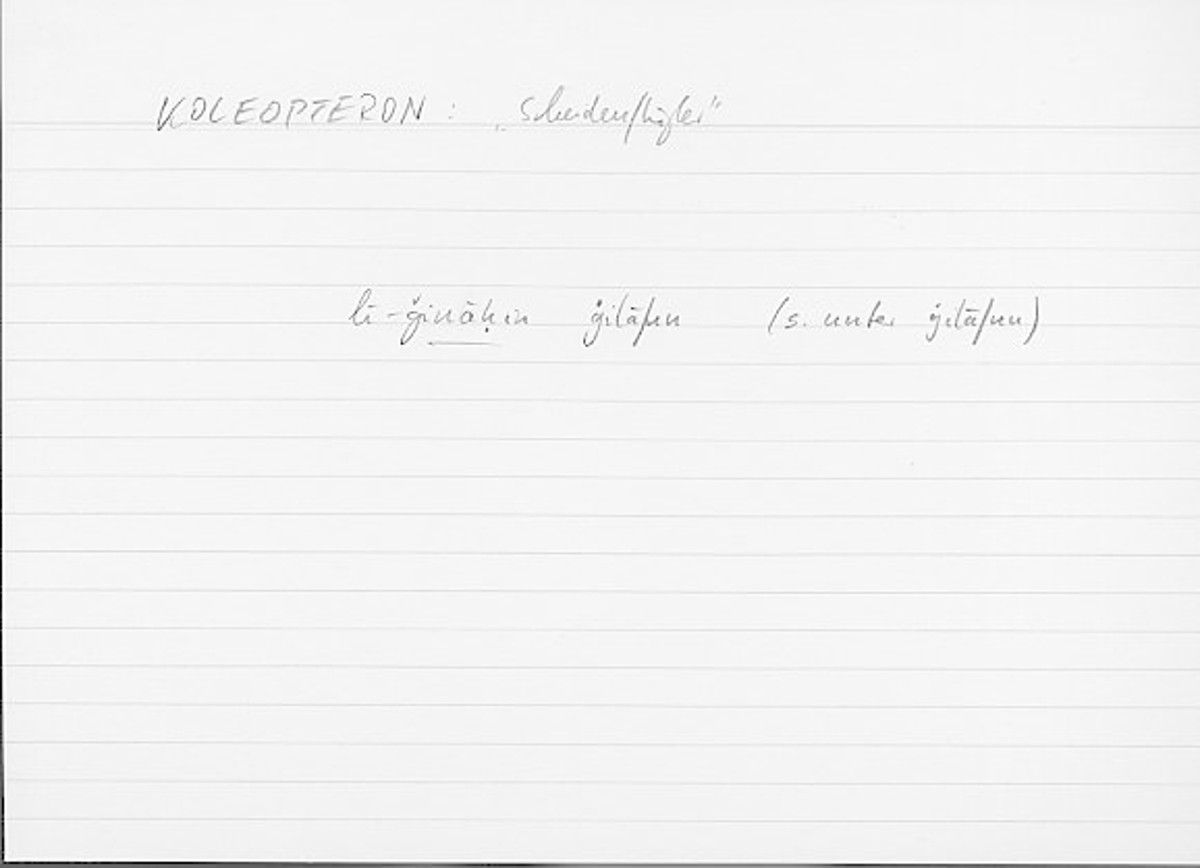 KOLEOPTERON : „Scheidenflügler"
li-ǧināḥin ǧilāfun (s. unter ǧilāfun)